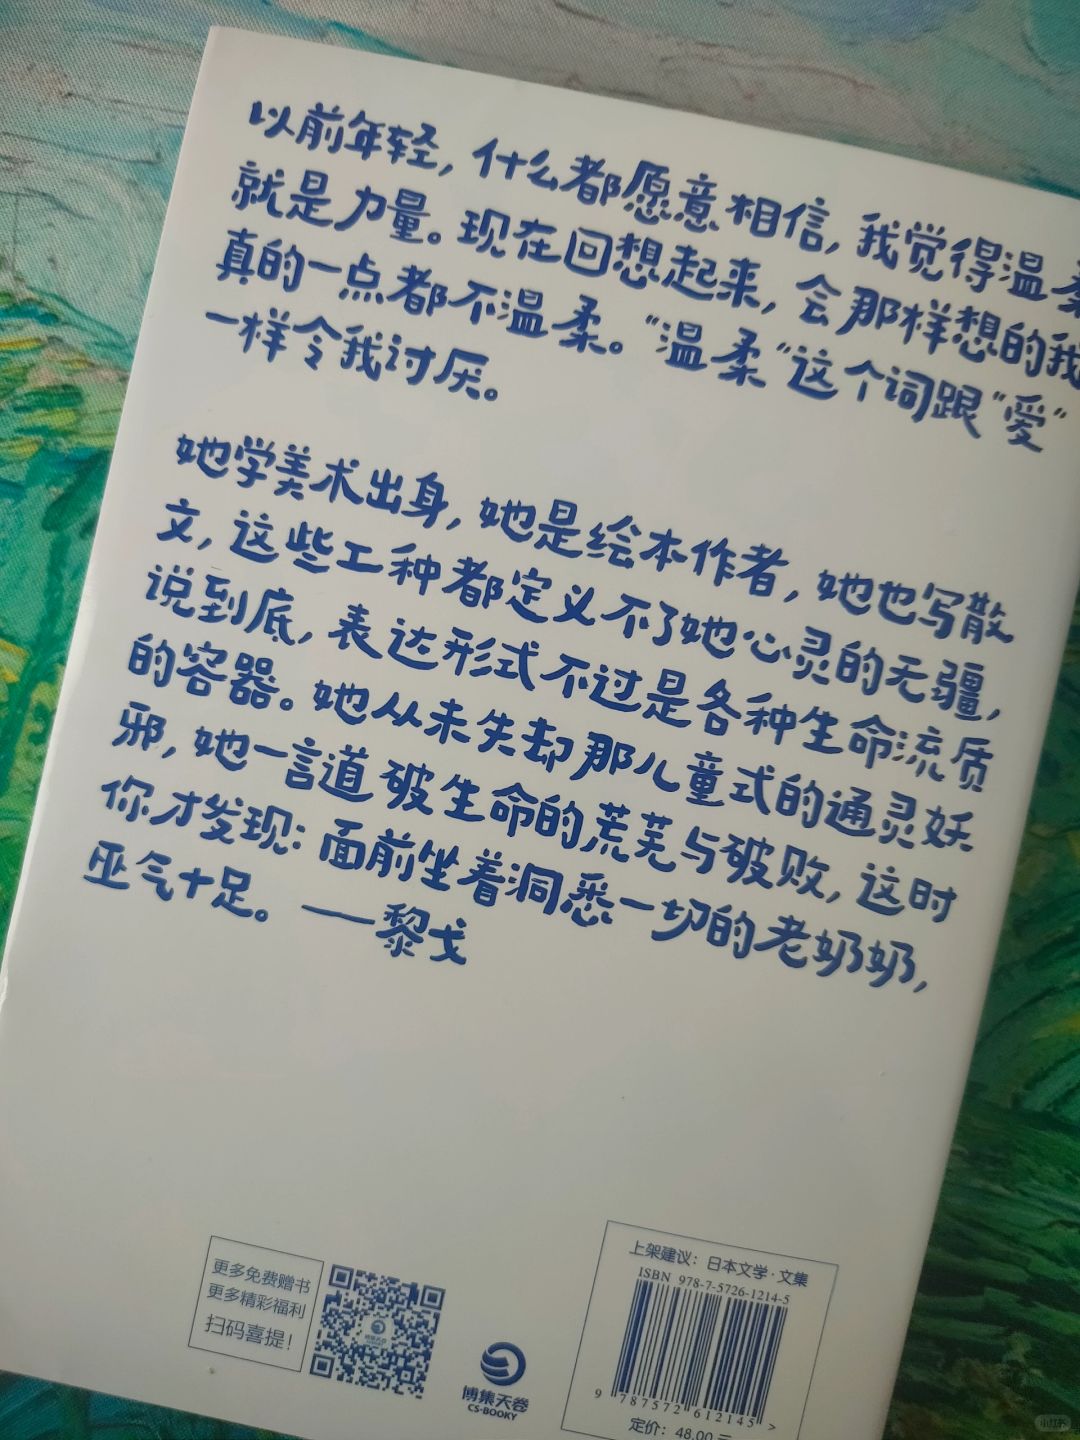 以前年轻，什么都愿意相信，我觉得温柔
就是力量。现在回想起来，会那样想的我
真的一点都不温柔。“温柔”这个词跟“爱”
一样令我讨厌。
她学美术出身，她是绘本作者，她也写散
文，这些工种都定义不了她心灵的无疆，
说到底，表达形式不过是各种生命流质
的容器。她从未失却那儿童式的通灵妖
邪，她一言道破生命的荒芜与破败，这时
你才发现：面前坐着洞悉一切的老奶奶，
巫气十足。——黎戈
更多免费赠书
更多精彩福利
扫码喜提！
博集天卷
CS-BOOKY
上架建议：日本文学·文集
ISBN 978-7-5726-1214-5
9 787572 612145 >
定价：48.00元
小红书